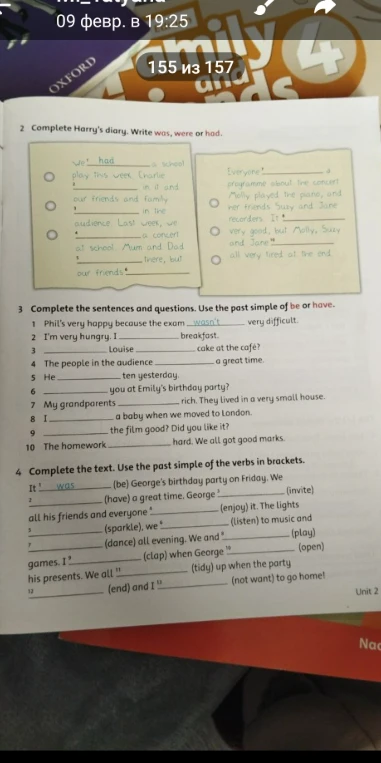 09 февр. в 19:25
155 из 157
OXFORD
Family
and
4
2 Complete Harry's diary. Write was, were or had.
We ¹ had a school
play this week. Charlie
² in it and
our friends and family
³ in the
audience. Last week, we
⁴ a concert
at school. Mum and Dad
⁵ there, but
our friends ⁶
Everyone ⁷ a
programme about the concert.
Molly played the piano, and
her friends Suzy and Jane
recorders. It ⁹
very good, but Molly, Suzy
and Jane ¹⁰
all very tired at the end.
3 Complete the sentences and questions. Use the past simple of be or have.
1 Phil's very happy because the exam wasn't very difficult.
2 I'm very hungry. I breakfast.
3 Louise cake at the café?
4 The people in the audience a great time.
5 He ten yesterday.
6 you at Emily's birthday party?
7 My grandparents rich. They lived in a very small house.
8 I a baby when we moved to London.
9 the film good? Did you like it?
10 The homework hard. We all got good marks.
4 Complete the text. Use the past simple of the verbs in brackets.
It ¹ was (be) George's birthday party on Friday. We
² (have) a great time. George ³ (invite)
all his friends and everyone ⁴ (enjoy) it. The lights
⁵ (sparkle), we ⁶ (listen) to music and
⁷ (dance) all evening. We and ⁸ (play)
games. I ⁹ (clap) when George ¹⁰ (open)
his presents. We all ¹¹ (tidy) up when the party
¹² (end) and I ¹³ (not want) to go home!
Unit 2